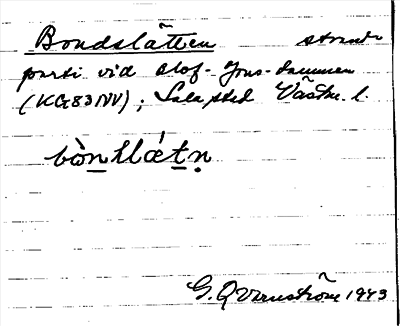 Bondslåtten strand-
parti vid Olof-Jons-dammen
(KG83NV); Sala stad Västm. l.
bòn slåtn
G. Q Vrnström 1943